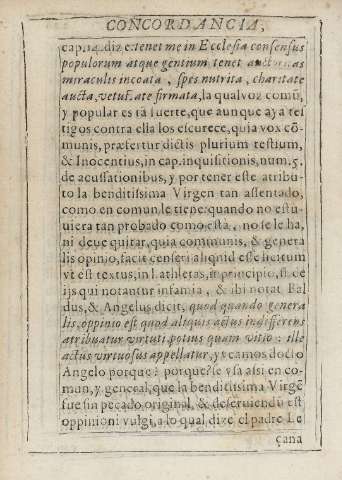 CONCORDANCIA,
cap. 14. dize: tenet me in Ecclesia consensus
populorum atque gentium tenet auctoritas
miraculis incoata, spes nutrita, charitate
aucta, vetustate firmata, la qual voz comũ,
y popular es tã fuerte, que aunque aya tes
tigos contra ella los escurece, quia vox cõ-
munis, præfertur dictis plurium testium,
& Inocentius, in cap. inquisitionis, num. 5.
de acussationibus, y por tener este atribu-
to la benditissima Virgen tan assentado,
como en comun le tiene: quando no estu-
uiera tan probado como està, no se le ha,
ni deue quitar, quia communis, & genera
lis opinio, facit censeri aliquid esse licitum
vt est textus, in l. athletas, in principio, ff. de
ijs qui notantur infamia, & ibi notat Bal
dus, & Angelus dicit, quod quando genera
lis, oppinio est quod aliquis actus indifferens
atribuatur virtuti potius quam vitio: ille
actus virtuosus appellatur, y si camos do dio
Angelo porque? porque se vsa assi en co-
mun, y general, que la benditissima Virgẽ
fue sin pecado original, & deseruiendũ est
oppinioni vulgi, a lo qual dize el padre Le
çana